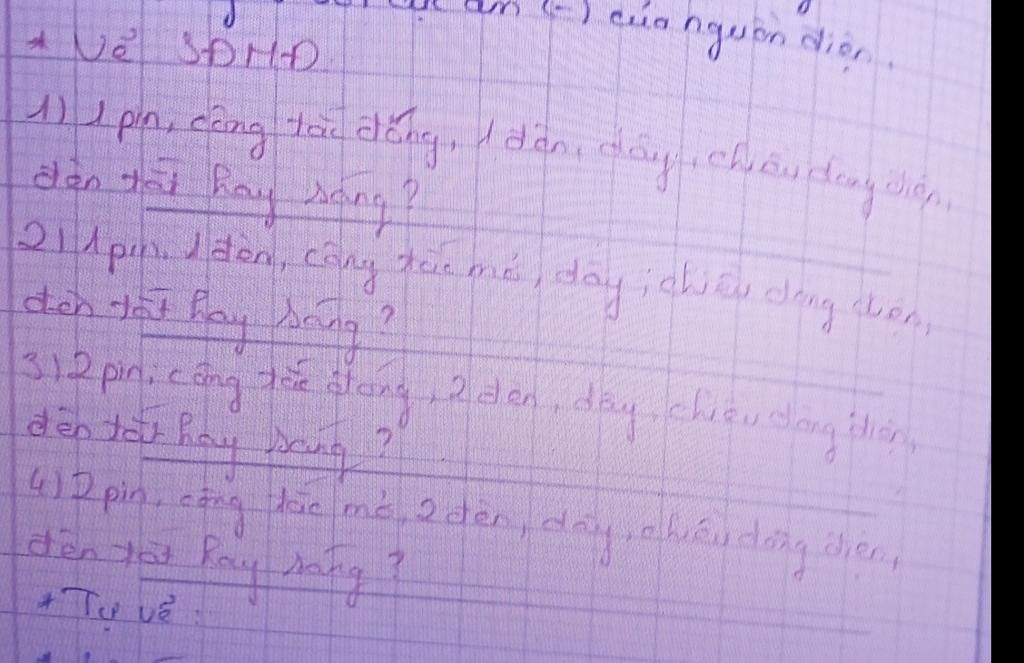 âm (-) của nguồn điện.
* Vẽ SĐHĐ
1) 1 pin, công tắc đóng, 1 đèn, dây, chiều dòng điện,
đèn tắt hay sáng?
2) 1 pin, 1 đèn, công tắc mở, dây, chiều dòng điện,
đèn tắt hay sáng?
3) 2 pin, công tắc đóng, 2 đèn, dây, chiều dòng điện,
đèn tắt hay sáng?
4) 2 pin, công tắc mở, 2 đèn, dây, chiều dòng điện,
đèn tắt hay sáng?
* Tự vẽ: